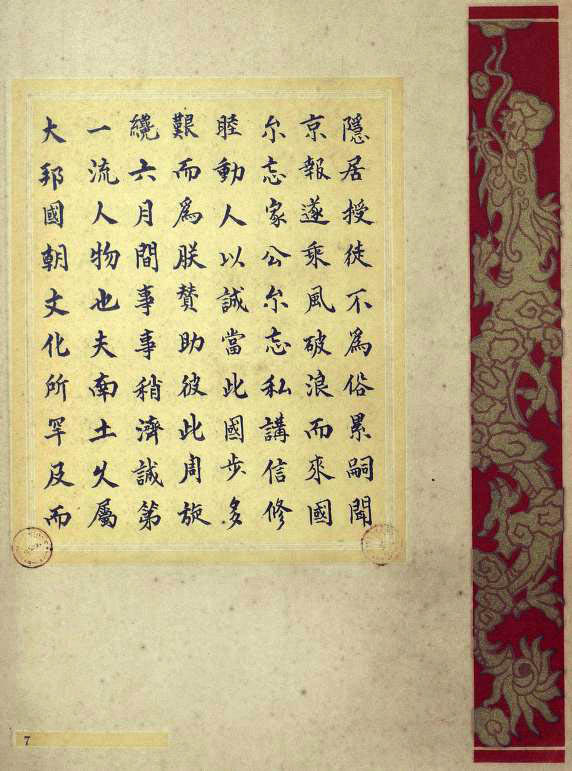 隱居授徒不為俗累嗣聞
京報遂乘風破浪而來國
尔忘家公尔忘私講信修
睦動人以誠當此國步多
艱而為朕贊助彼此周旋
纔六月間事事稍濟誠第
一流人物也夫南土久屬
大邦國朝文化所罕及而
7